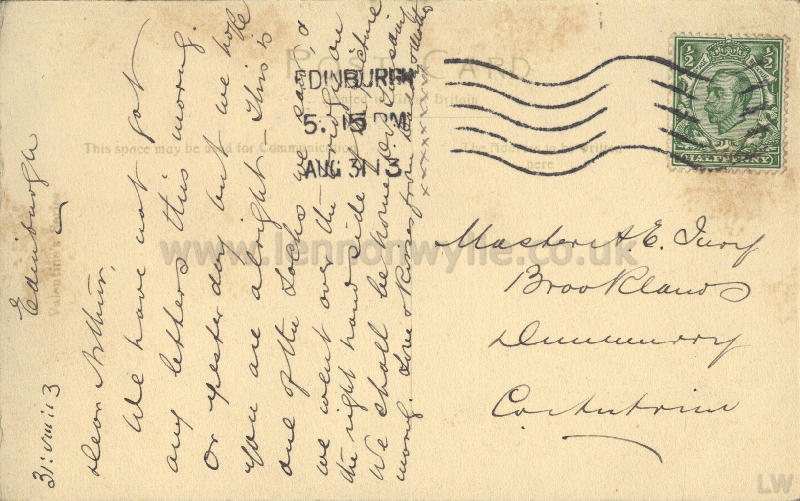 POST CARD
Printed in Great Britain
This space may be used for Communication
The Address to be written
here
EDINBURGH
5: 15 PM
AUG 31 13
1/2 1/2
HALFPENNY
Valentine's Series
Edinburgh
31:viii:13
Dear Arthur,
We have not got
any letters this morng.
or yesterday but we hope
you are alright – This is
one of the Locks we saw, &
we went over the bridge on
the right hand side of picture
We shall be home D.V. Tuesday
morng. Love & kisses from Mother
xxxxxxxxxx
Master A. E. Turf
Brooklands
Dunmurry
Co. Antrim
www.lennonwylie.co.uk
LW